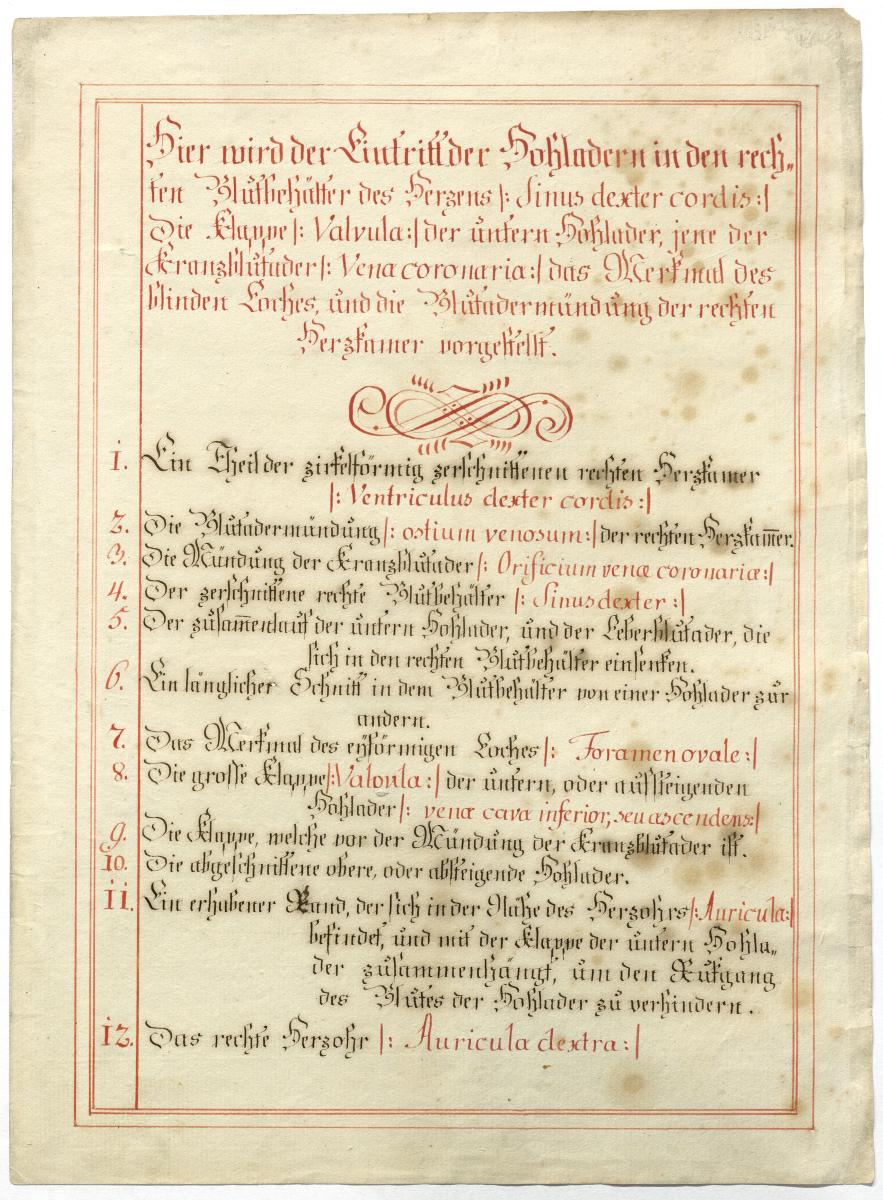 Hier wird der Eintritt der Hohladern in den rech„
ten Blutbehälter des Herzens |: Sinus dexter cordis :|
Die Klappe |: Valvula :| der untern Hohlader, jene der
Kranzblutader |: Vena coronaria :| das Merkmal des
blinden Loches, und die Blutadermündung der rechten
Herzkamer vorgestellt.
1. Ein Theil der zirkelförmig zerschnittenen rechten Herzkamer
|: Ventriculus dexter cordis :|
2. Die Blutadermündung |: ostium venosum :| der rechten Herzkam̅er.
3. Die Mündung der Kranzblutader |: Orificium venæ coronariæ :|
4. Der zerschnittene rechte Blutbehälter |: Sinus dexter :|
5. Der zusam̅enlauf der untern Hohlader, und der Leberblutader, die
sich in den rechten Blutbehälter einsenken.
6. Ein länglicher Schnitt in dem Blutbehälter von einer Hohlader zur
andern.
7. Das Merkmal des eyförmigen Loches |: Foramen ovale :|
8. Die grosse Klappe |: Valvula :| der untern, oder aufsteigenden
Hohlader |: venæ cava inferior, seu ascendens :|
9. Die Klappe, welche vor der Mündung der Kranzblutader ist.
10. Die abgeschnittene obere, oder absteigende Hohlader.
11. Ein erhabener Rand, der sich in der Nähe des Herzohrs |: Auricula :|
befindet, und mit der Klappe der untern Hohla„
der zusammenhängt, um den Rukgang
des Blutes der Hohlader zu verhindern.
12. Das rechte Herzohr |: Auricula dextra :|